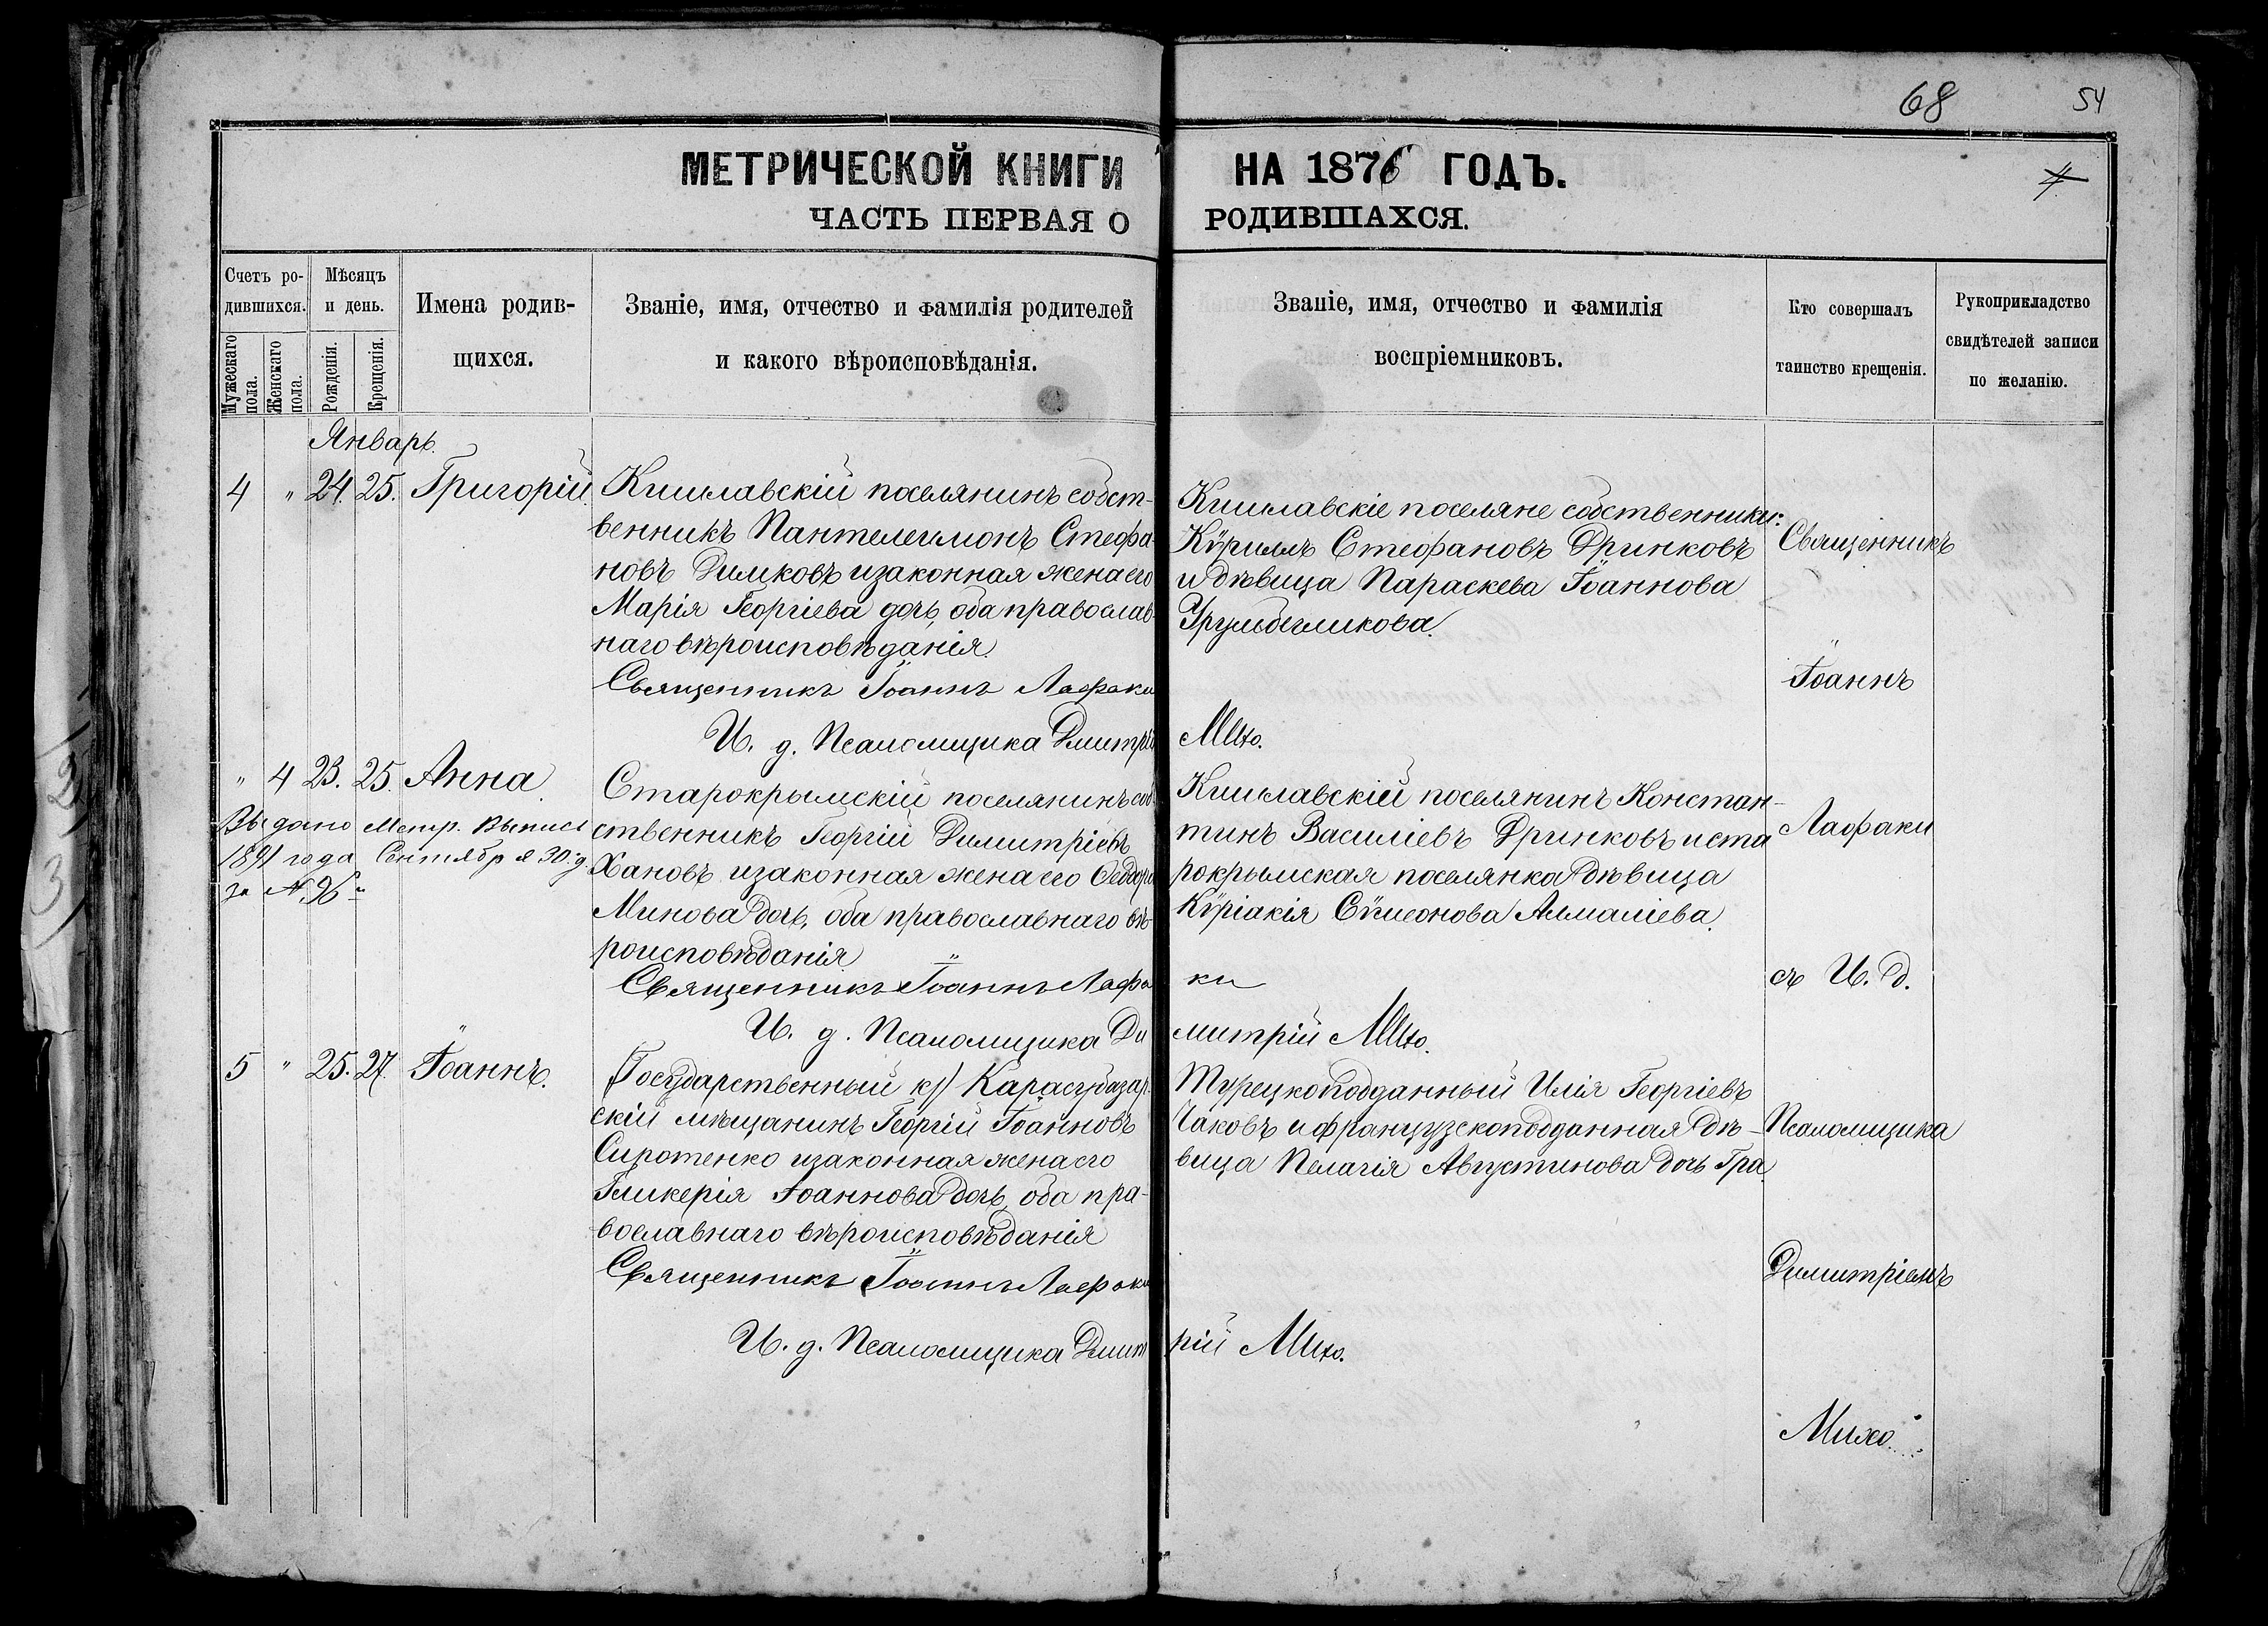 68
54
МЕТРИЧЕСКОЙ КНИГИ НА 1876 ГОДЪ.
4
ЧАСТЬ ПЕРВАЯ О РОДИВШАХСЯ.
Счетъ ро-
дившихся.
Мужескаго пола.
Женскаго пола.
Мѣсяцъ
и день.
Рожденія.
Крещенія.
Имена родив-
щихся.
Званіе, имя, отчество и фамилія родителей
и какого вѣроисповѣданія.
Званіе, имя, отчество и фамилія
воспріемниковъ.
Кто совершалъ
таинство крещенія.
Рукоприкладство
свидѣтелей записи
по желанію.
Январь.
4 " 24. 25. Григорій.
Кишлавскій поселянинъ собст-
венникъ Пантелеимонъ Стефа-
новъ Димковъ и законная жена его
Марія Георгіева дочь, оба православ-
наго вѣроисповѣданія.
Священникъ Іоаннъ Лафаки
И. д. Псаломщика Дмитрій Михо.
Кишлавскіе поселяне собственники:
Кѵриллъ Стефановъ Дринковъ
и дѣвица Параскева Іоаннова
" 4 23. 25. Анна.
Выдано Метр. Выпись
1891 года Сентября 30. д.
за №
Старокрымскій поселянинъ соб-
ственникъ Георгій Димитріевъ
Хановъ и законная жена его
Минова дочь, оба православнаго вѣ-
роисповѣданія
Священникъ Іоаннъ Лафаки
И. д. Псаломщика Димитрій Михо.
Кишлавскій поселянинъ Констан-
тинъ Василіевъ Дринковъ и ста
рокрымская поселянка дѣвица
Кѵріакія Сѵмеонова Алмаліева.
5 " 25. 27. Іоаннъ.
(Государственный кр) Карасубазар-
скій мѣщанинъ Георгій Іоанновъ
Сиротенко и законная жена его
Гликерія Іоаннова дочь, оба пра-
вославнаго вѣроисповѣданія
Священникъ Іоаннъ Лафаки
И. д. Псаломщика Дмитрій Михо.
Турецкоподданный Илія Георгіевъ
Чаковъ и французскоподданная дѣ-
вица Пелагія Августинова дочь Гра.
Священникъ
Іоаннъ
Лафаки
съ И. д.
Псаломщика
Димитріемъ
Михо.